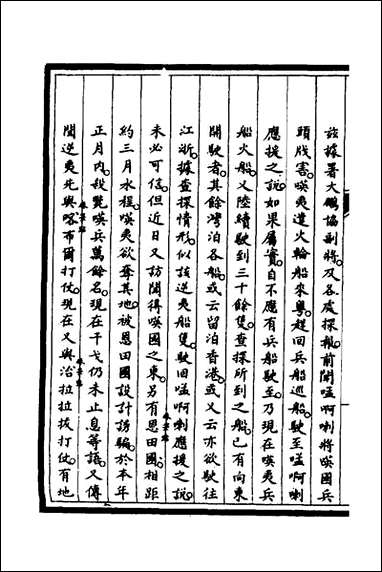 玆據署大鵬協副將及各處探報前聞嗌啊喇將嘆國兵
頭戕害嘆夷遣火輪船來粵趕回兵船巡船駛至嗌啊喇
應援之說如果屬實自不應有兵船駛至乃現在嘆夷兵
船火船又陸續駛到三十餘隻查探所到之船已有向東
開駛者其餘灣泊各船或云留泊香港或又云亦欲駛往
江浙據查探情形似該逆夷船隻駛救舊嗌啊喇應援之說
未必可信但近日又訪聞得嘆國之東另有恩田國相距
約三月水程嘆夷欲奪其地被恩田國設計誘騙於本年
正月內殺斃嘆兵萬餘名現在干戈仍未止息等語又傳
聞逆夷先與喀布爾打仗現在又與治拉拉拔打仗有地